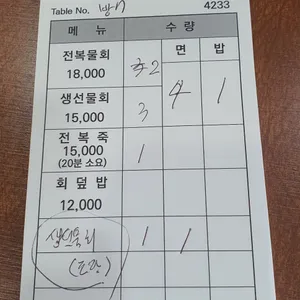 Table No. 4233
메 뉴 수 량
면 밥
전복물회
18,000 2
4 1
생선물회
15,000 3
전 복 죽
15,000 1
(20분 소요)
회 덮 밥
12,000
1 1
(포장)